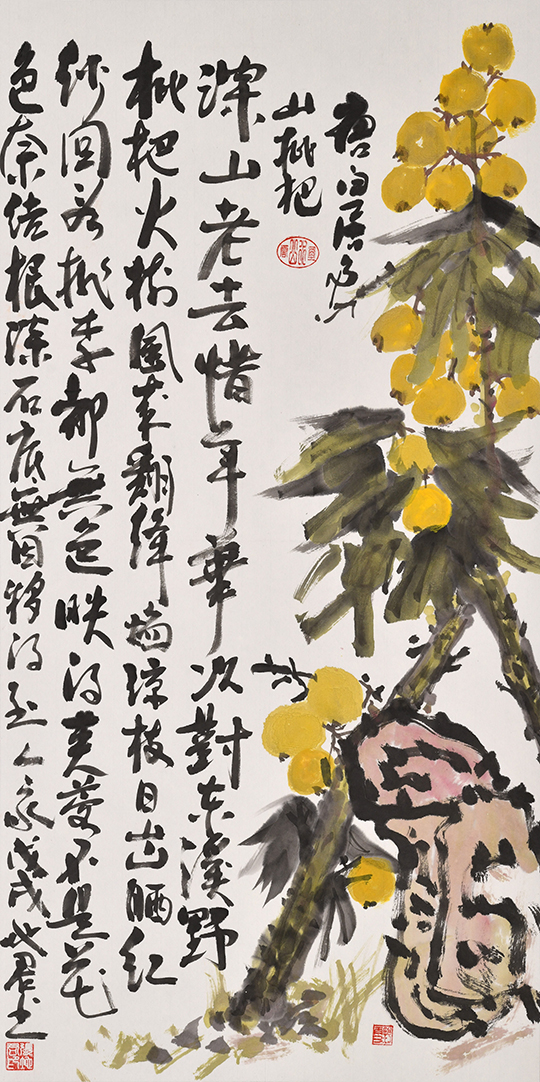 唐白居易
山枇杷
深山老去惜年華况對东溪野
枇杷火樹風来翻絳焰琼枝日出晒红
纱回看桃李都无色映得芙蓉不是花
争奈结根深石底無因移得到人家戊戌世君书